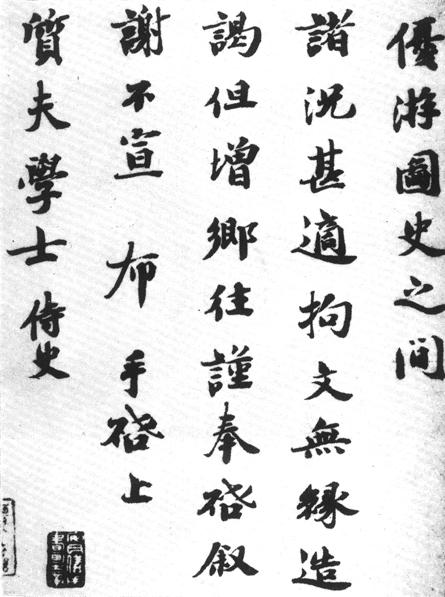 優游圖史之間
諸況甚適拘文無緣造
謁但增鄉往謹奉啓叙
謝不宣 布 手啓上
質夫學士 侍史